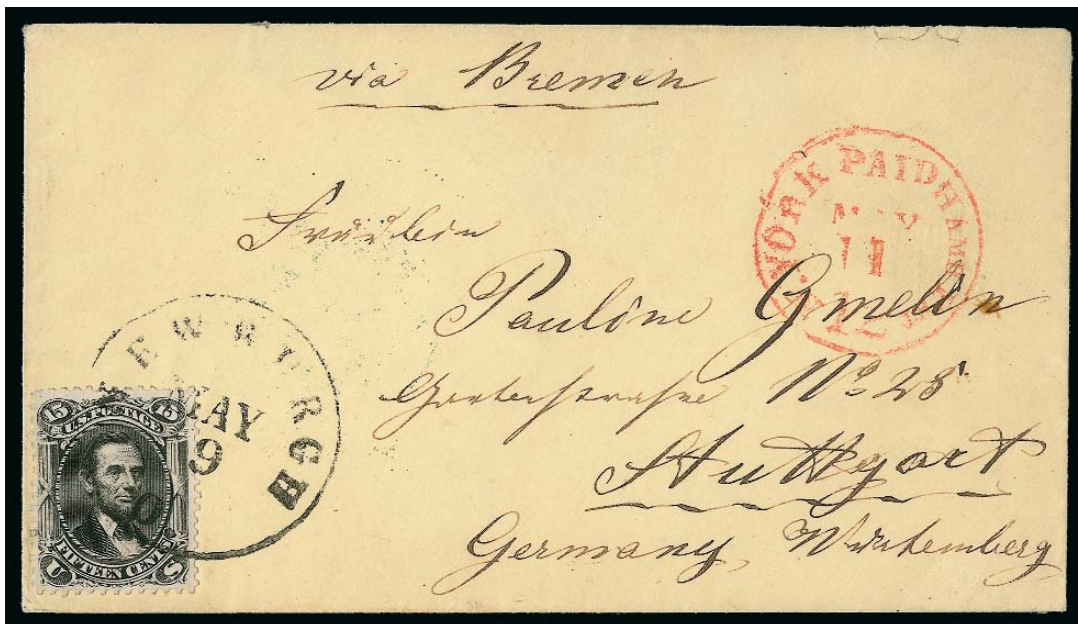 via Bremen
N. YORK PAID HAMB. PKT.
MAY
11
12
Fräulein
Pauline Gmelin
Gartenstrasse No 28
Stuttgart
Germany, Würtemberg
NEWBURGH
MAY
9
15 15
U.S. POSTAGE
FIFTEEN CENTS
U S